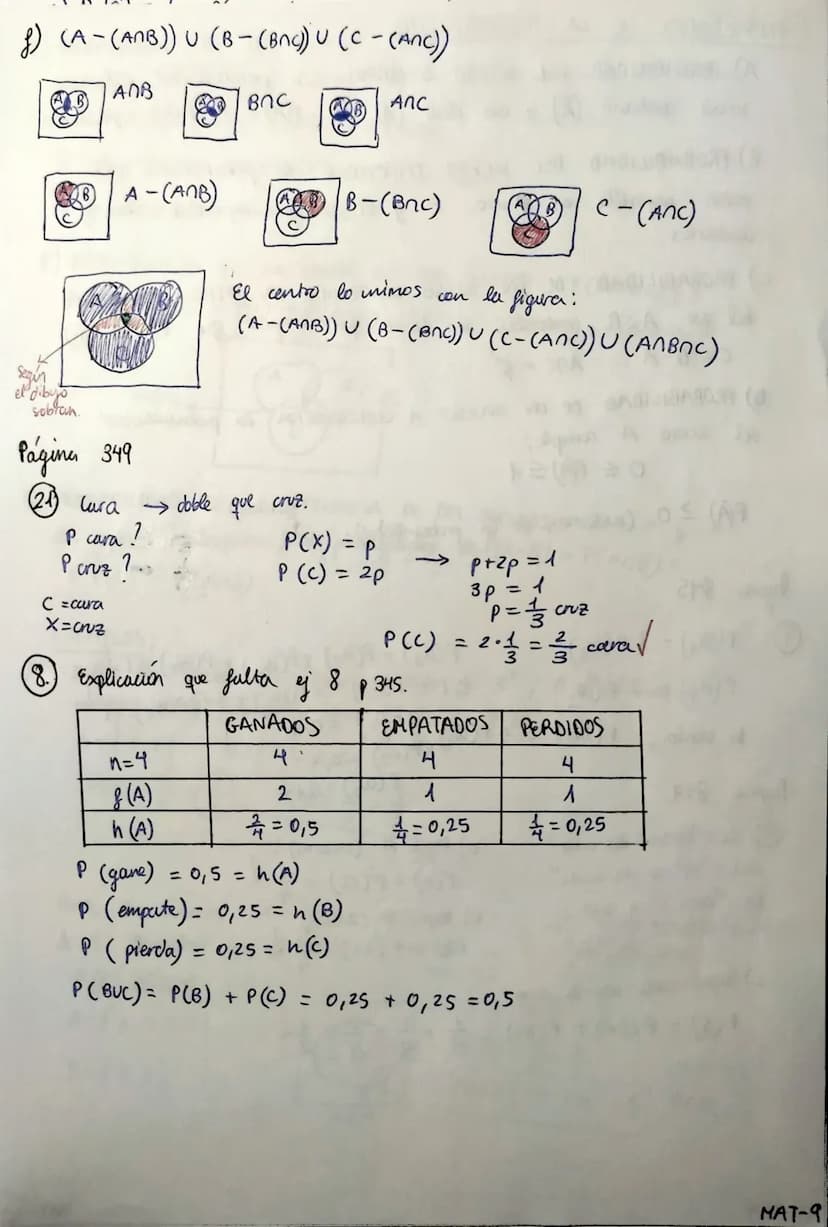 f) (A-(A∩B)) ∪ (B-(B∩C) ∪ (C-(A∩C))
A B C A∩B A B C B∩C A B C A∩C
A B C A-(A∩B) A B C B-(B∩C) A B C C-(A∩C)
A B C
El centro lo unimos con la figura:
(A-(A∩B)) ∪ (B-(B∩C)) ∪ (C-(A∩C)) ∪ (A∩B∩C)
Según
el dibujo
sobran.
Página 349
21 Cara → doble que cruz.
P cara?
P cruz?
C = cara
X = cruz
P(X) = p
P(C) = 2p
→ p+2p = 1
3p = 1
p = 1/3 cruz
P(C) = 2·1/3 = 2/3 cara ✓
8. Explicación que falta ej 8 p 345.
GANADOS EMPATADOS PERDIDOS
n=4 4 4 4
f(A) 2 1 1
h(A) 2/4 = 0,5 1/4 = 0,25 1/4 = 0,25
P (gane) = 0,5 = h(A)
P (empate) = 0,25 = h(B)
P (pierda) = 0,25 = h(C)
P(B∪C) = P(B) + P(C) = 0,25 + 0,25 = 0,5
MAT-9